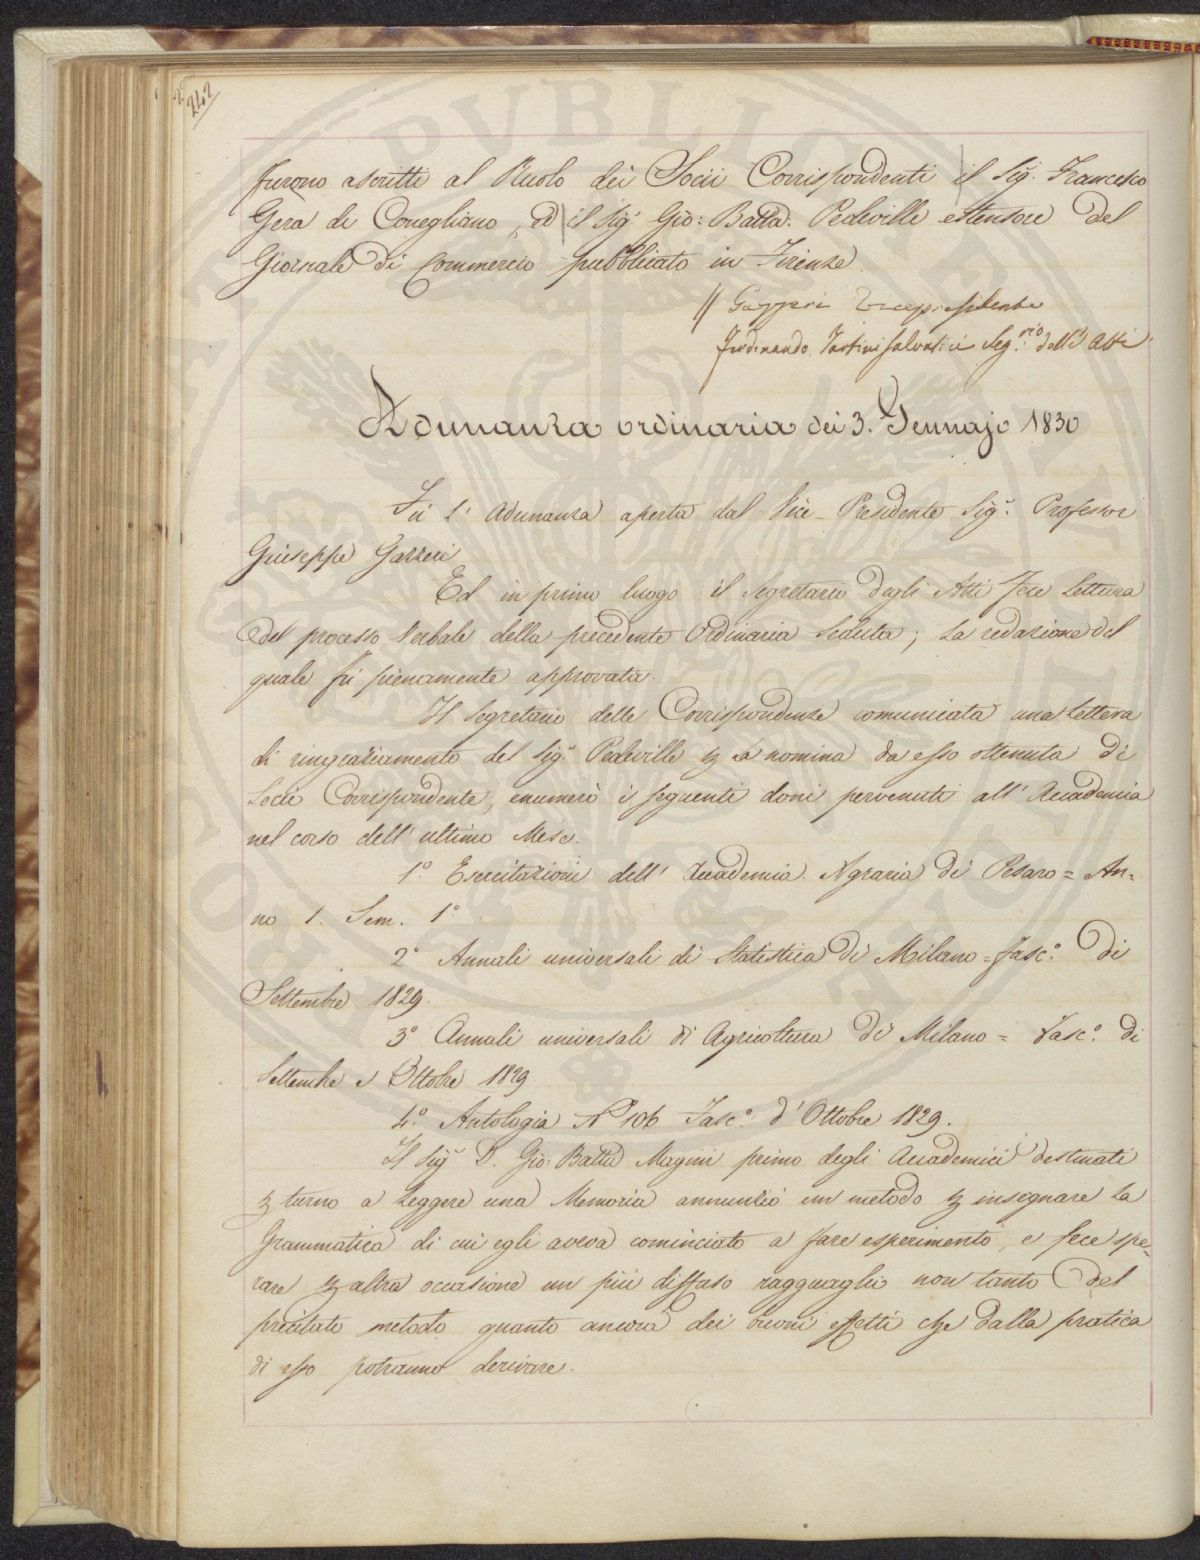 242
furono ascritti al Ruolo dei Socii Corrispondenti il Sig.r Francesco
Gera di Conegliano, ed il Sig.r Gio: Batta: Pedeville estensore del
Giornale di Commercio pubblicato in Firenze.
// Gazzeri Vicepresidente
Ferdinando Tartini Salvatici Seg.rio delli Atti
Adunanza ordinaria dei 3. Gennajo 1830
Fù l'Adunanza aperta dal Vice-Presidente Sig.r Professor
Giuseppe Gazzeri
Ed in primo luogo il Segretario degli Atti fece Lettura
del processo Verbale della precedente Ordinaria Seduta; La redazione del
quale fù pienamente approvata.
Il Segretario delle Corrispondenze comunicata una Lettera
di ringraziamento del Sig.r Pedeville p La nomina da esso ottenuta di
Socio Corrispondente, enumerò i seguenti doni pervenuti all'Accademia
nel corso dell'ultimo Mese.
1.° Esercitazioni dell'Accademia Agraria di Pesaro = An=
no 1. Sem. 1.°
2.° Annali universali di Statistica di Milano = fasc.° di
Settembre 1829.
3.° Annali universali di Agricoltura di Milano = Fasc.° di
Settembre e Ottobre 1829.
4.° Antologia N.° 106 Fasc.° d'Ottobre 1829.
Il Sig.r D. Gio: Batta Magini primo degli Accademici destinati
p turno a Leggere una Memoria annunziò un metodo p insegnare La
Grammatica di cui egli aveva cominciato a fare esperimento, e fece spe=
rare p altra occasione un più diffuso ragguaglio non tanto del
precitato metodo quanto ancora dei buoni effetti che dalla pratica
di esso potranno derivare.